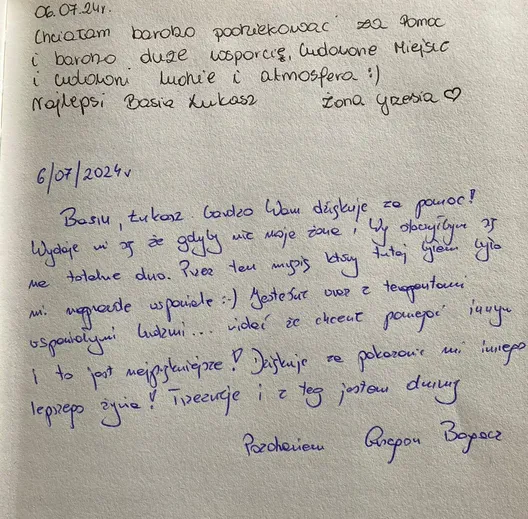 06.07.24r.
Chciałam bardzo podziękować za Pomoc
i bardzo duże wsparcie, Cudowne Miejsc
i cudowni ludzie i atmosfera :)
Najlepsi Basia Łukasz Żona Grzesia ♡
6/07/2024r
Basiu, Łukasz. Bardzo Wam dziękuję za pomoc!
Wydaje mi się że gdyby nie moja żona i Wy
na totalne dno. Przez ten który tutaj byłem było
mi naprawdę wspaniale :-) Jesteście wraz z terapeutami
wspaniałymi ludźmi... widać że chcecie pomagać innym
i to jest najpiękniejsze! Dziękuję za pokazanie mi innego
lepszego życia! Trzeźwieję i z tego jestem dumny
Pozdrawiam